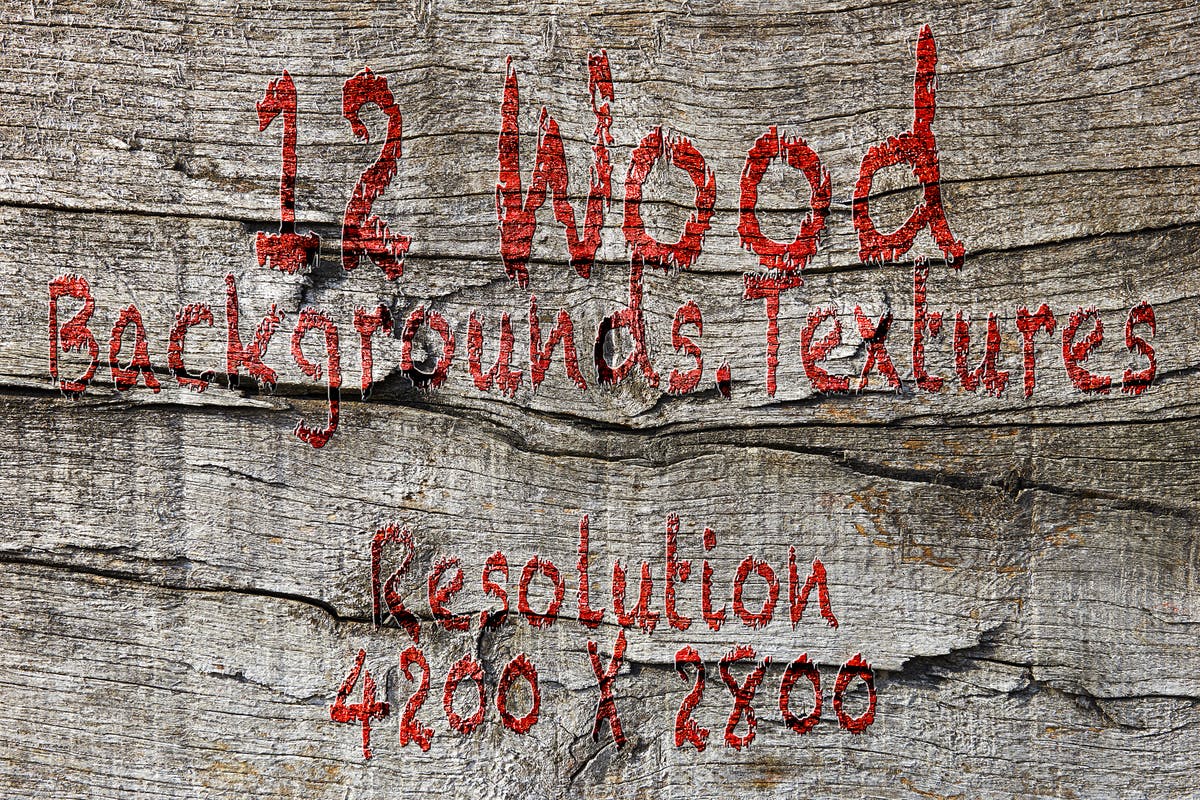 12 Wood
Backgrounds. Textures
Resolution
4200 X 2800